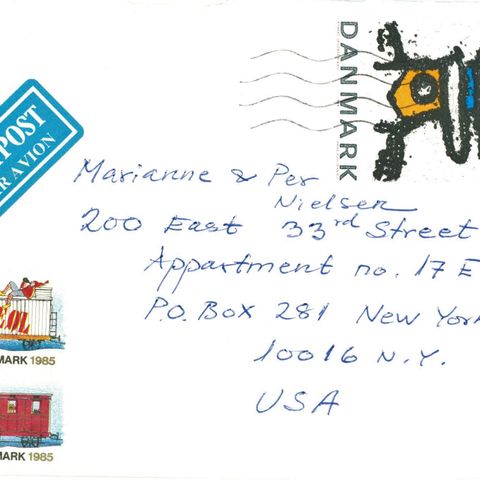 DANMARK
POST
AR AVION
Marianne & Per
Nielsen
200 East 33rd Street
Appartment no. 17 E
P.O. Box 281 New York
10016 N.Y.
USA
MARK 1985
MARK 1985